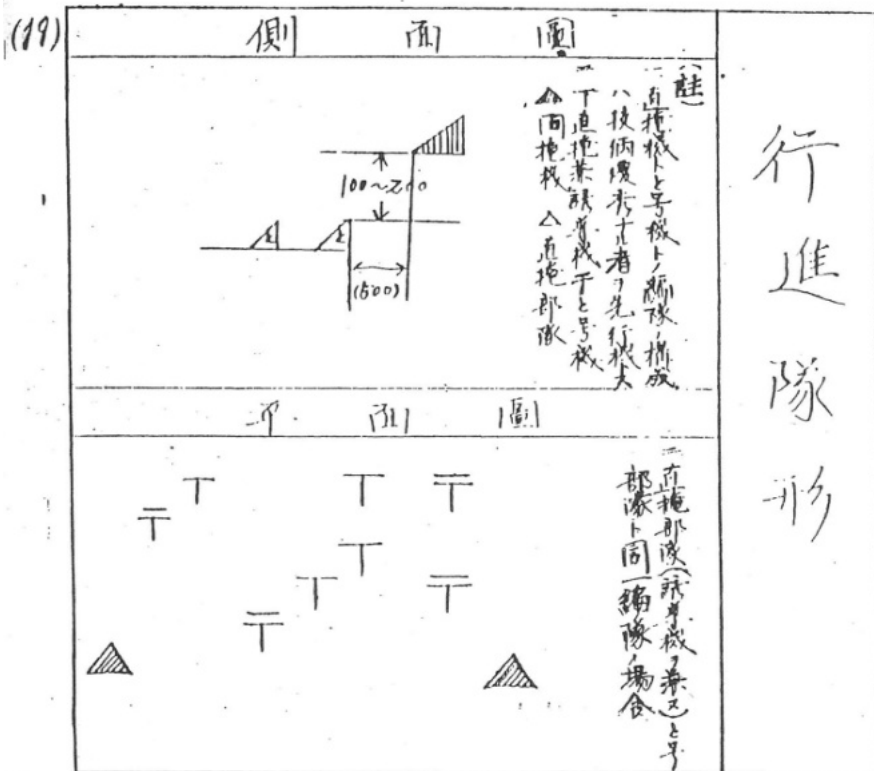 (19)
行進隊形
側面圖
(註)
一 直掩機ト と号機ト ノ 編隊ノ構成
ハ技倆優秀ナル者ヲ先行機ト
二 〒直掩兼誘導機 干と号機
間掩機 △直掩部隊
100~200
(500)
平面圖
二 直掩部隊(誘導機ヲ兼ス)と号
部隊ト同一編隊ノ場合